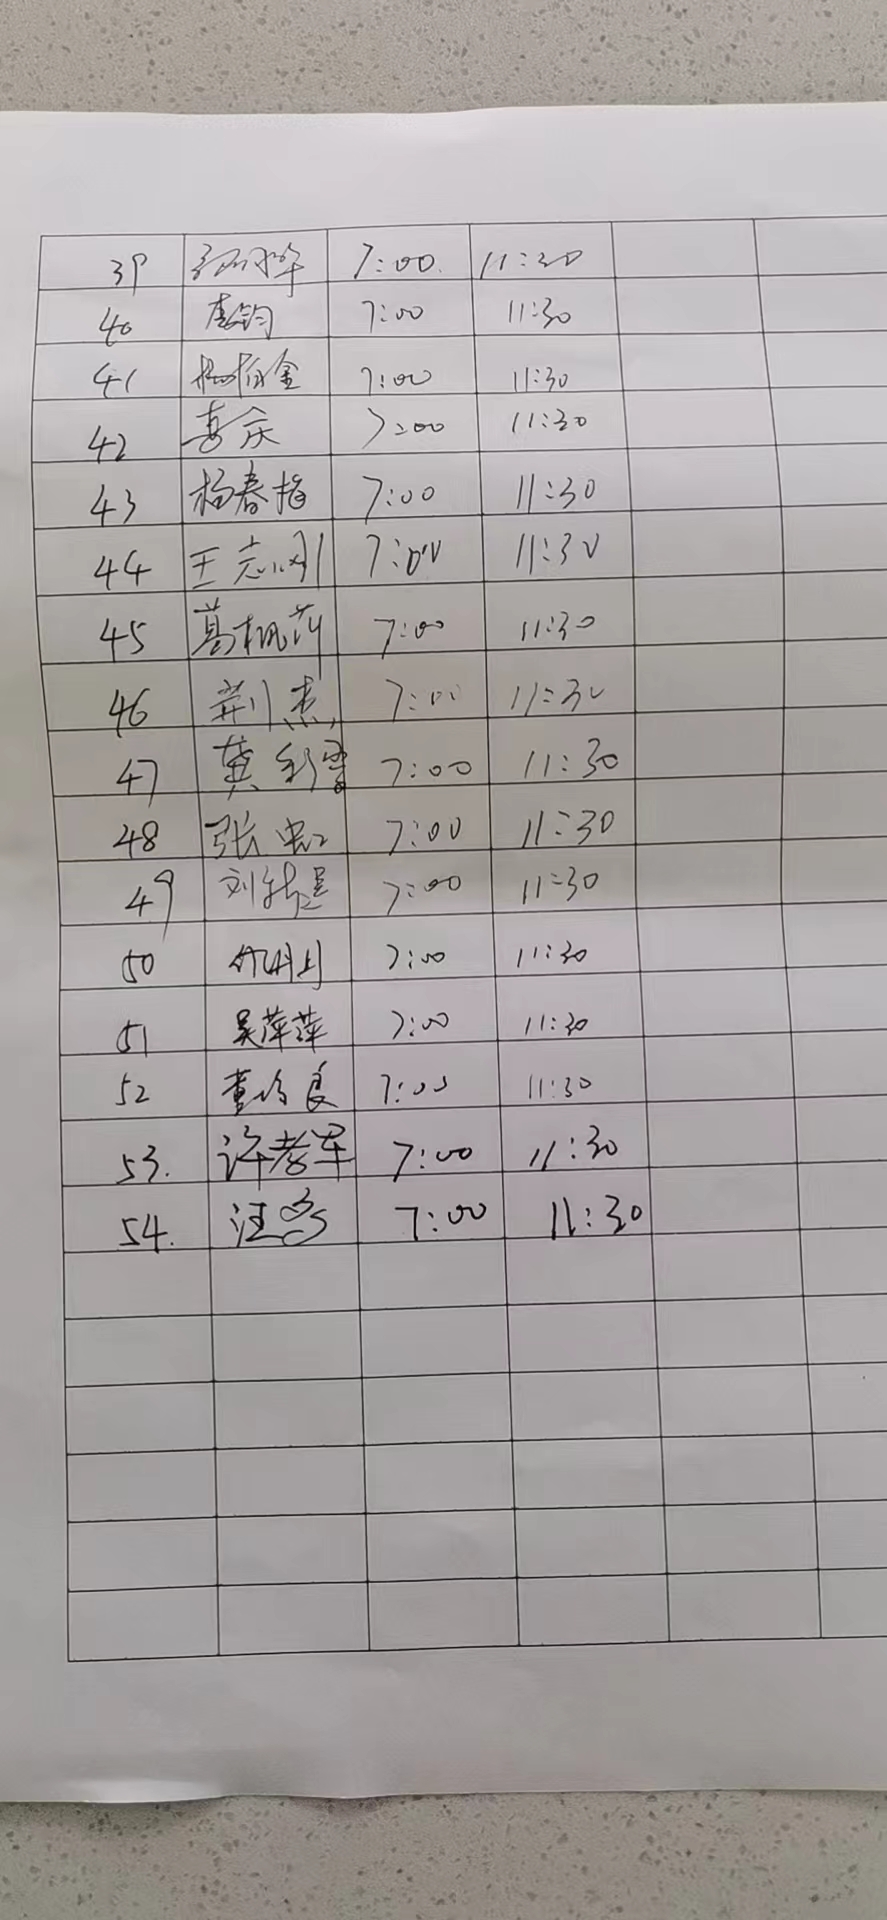 39 7:00 11:30
40 唐钧 7:00 11:30
41 7:00 11:30
42 7:00 11:30
43 杨春梅 7:00 11:30
44 王志刚 7:00 11:30
45 葛枫荷 7:00 11:30
46 荆杰 7:00 11:30
47 黄彩雪 7:00 11:30
48 张虹 7:00 11:30
49 7:00 11:30
50 7:00 11:30
51 吴萍萍 7:00 11:30
52 7:00 11:30
53. 许孝军 7:00 11:30
54. 汪 7:00 11:30